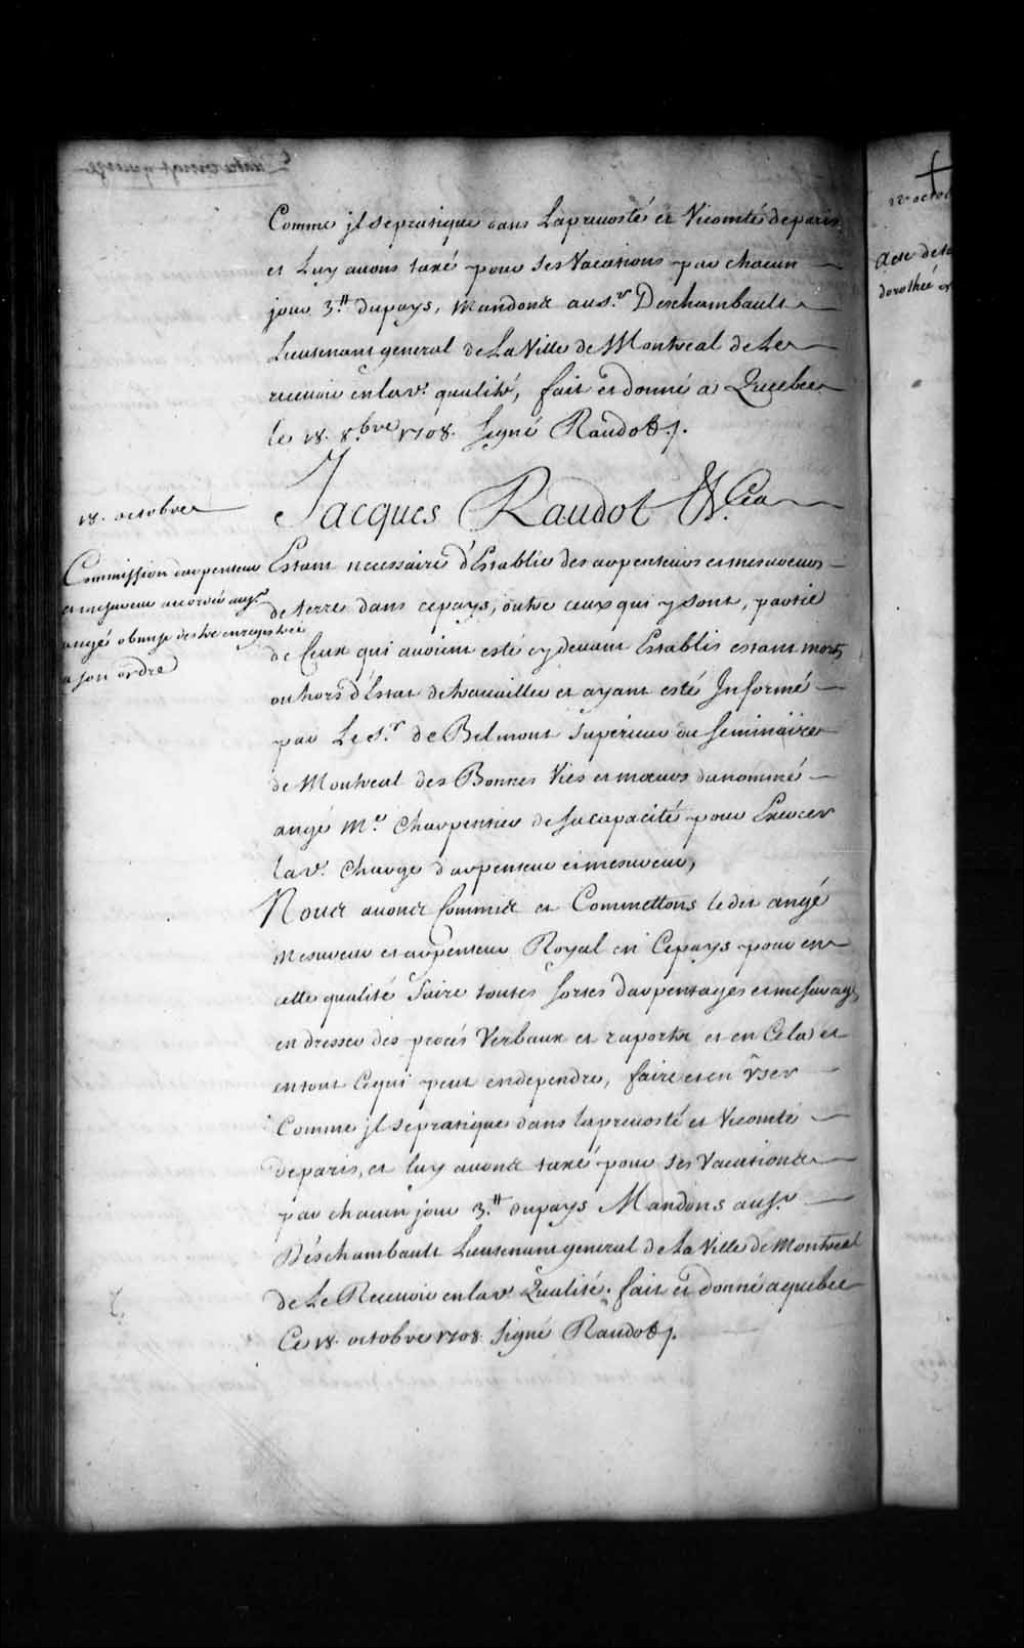 Comme jl sepratique dans Laprevosté et Vicomté deparis
et Luy auons taxé pour ses Vacations par chacun
jour 3.tt dupays, Mandons aus.r Deschambault
Lieutenant general de La Ville de Montreal de Le
receuoir enlad. qualité, fait et donné a Quebec
le 18. 8.bre 1708. Signé Raudot ./.
18. octobre
Jacques Raudot &.Ca
Commission darpenteur
et mesureur accordée aus.r
angé
a son ordre
Estant necessaire d'Establir des arpenteurs et mesureurs
de terre dans cepays, outre ceux qui y sont, partie
de Ceux qui auoient esté cy deuant Establis estant morts
ou hors d'Estat detrauailler et ayant esté Jnformé
par Le S.r de Belmont Superieur du Seminaire
de Montreal des Bonnes Vies et mœurs dunommé
angé M.e Charpentier de Sa capacité pour Exercer
lad. Charge d'arpenteur et mesureur,
Nous auons Commis et Commettons ledit angé
Mesureur et arpenteur Royal en Cepays pour en
cette qualité faire toutes sortes darpentages et mesurages
en dresser des procés Verbaux et raports et en Cela et
entout Cequi peut endependre, faire et en Vser
Comme jl sepratique dans laprevosté et Vicomté
deparis, et luy auons taxé pour ses Vacations
par chacun jour 3.tt dupays Mandons aus.r
Déschambault Lieutenant general de La Ville de Montreal
de Le Receuoir enlad. Qualité. fait et donné a quebec
Ce 18. octobre 1708. Signé Raudot ./.
Acte de
dorothée